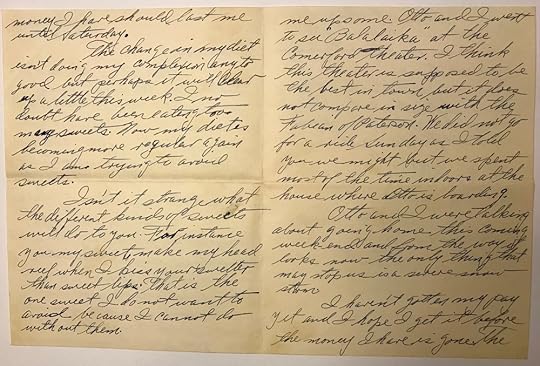 money I have should last me
until Saturday.
The change in my diet
isn't doing my complexion any to
good but perhaps it will clear
up a little this week. I no
doubt have been eating too
many sweets. Now my diet is
becoming more regular again
as I am trying to avoid
sweets.
Isn't it strange what
the different kinds of sweets
will do to you. For instance
you my sweet, make my head
reel when I kiss your sweeter
than sweet lips. That is the
one sweet I do not want to
avoid because I cannot do
without them.
me up some Otto and I went
to see "Balalaika" at the
Comerford theater. I think
this theater is supposed to be
the best in town but it does
not compare in size with the
Fabian of Paterson. We did not go
for a ride Sunday as I told
you we might but we spent
most of the time indoors at the
house where Otto is boarding.
Otto and I were talking
about going home this coming
week end and from the way it
looks now the only thing that
may stop us is a severe snow
storm.
I haven't gotten my pay
yet and I hope I get it before
the money I have is gone. the